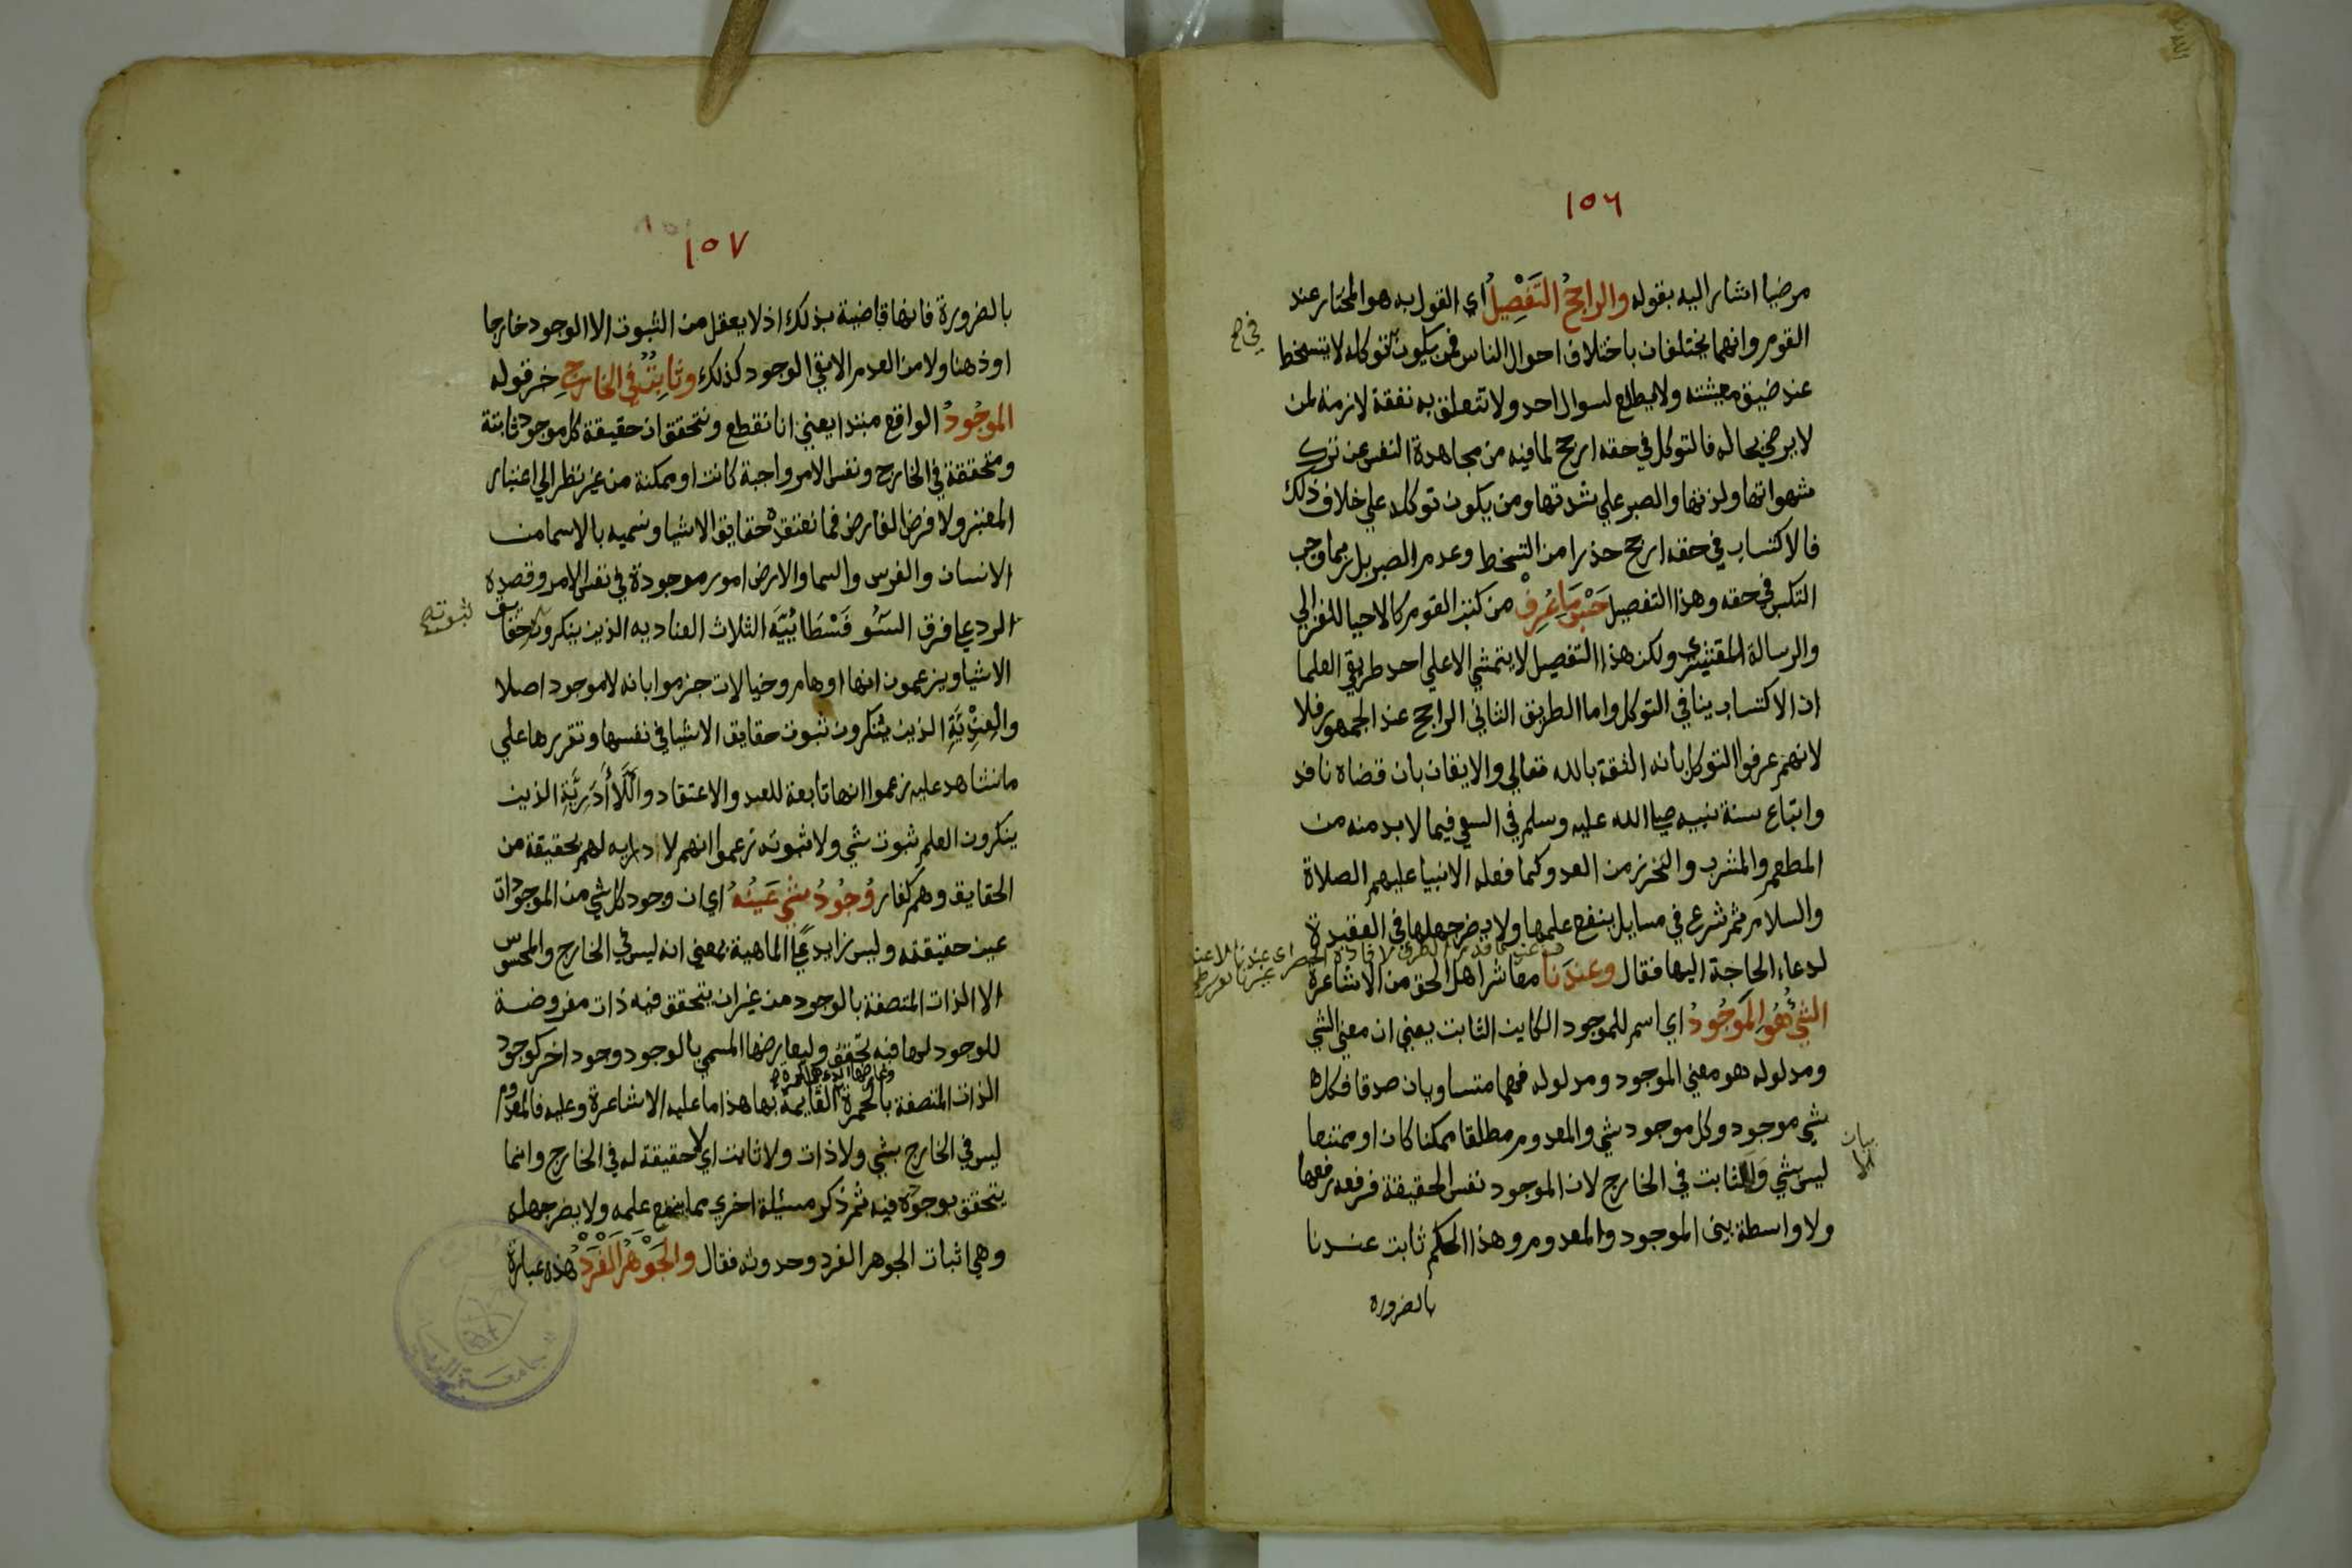 ١٥٦
مرضيا اشار اليه بقوله والراجحُ التَفْصِيلُ اي القول به هو المختار عند
القوم وانهما يختلفان باختلاف احوال الناس فمن يكون توكله لا يتسخط
في
عند ضيق معيشته ولا يطلع لسوال احد ولا تتعلق به نفقة لازمة لمن
لا يرضي بحاله فالتوكل في حقه ارجح لما فيه من مجاهدة النفس عن ترك
شهواتها ولذتها والصبر علي شدتها ومن يكون توكله علي خلاف ذلك
فالاكتساب في حقه ارجح حذرا من التسخط وعدم الصبر بل ربما وجب
التكسب في حقه وهذا التفصيل حَسْبَمَا عُرِفْ من كتب القوم كالاحيا للغزالي
والرسالة للقشيري ولكن هذا التفصيل لا يتمشي الا علي احد طريقي العلما
ان الاكتساب ينافي التوكل واما الطريق الثاني الراجح عند الجمهور فلا
لانهم عرفوا التوكل بانه الثقة بالله تعالي والايقان بان قضاه نافد
واتباع سنة نبيه صلي الله عليه وسلم في السعي فيما لا بد منه من
المطعم والمشرب والتحرز من العدو كما فعله الانبيا عليهم الصلاة
والسلام ثم شرع في مسايل ينفع علمها ولا يضر جهلها في العقيدة
لدعاء الحاجة اليها فقال وعندَنا معاشر اهل الحق من الاشاعرة
الشيُ هُوَ المَوجُودُ اي اسم للموجود الكاين الثابت يعني ان معني الشي
ومدلوله هو معني الموجود ومدلوله فهما متساويان صدقا فكل
شي موجود وكل موجود شي والمعدوم مطلقا ممكنا كان او ممتنعا
بيان
ليس بشي ولا ثابت في الخارج لان الموجود نفس الحقيقة فرفعه رفعها
ولا واسطة بين الموجود والمعدوم وهذا الحكم ثابت عندنا
بالضروره
١٥٧
بالضرورة فانها قاضية بذلك اذ لا يعقل من الثبوت الا الوجود خارجا
او ذهنا ولا من العدم الا نفي الوجود كذلك وثَابِتٌ في الخارجِ خبر قوله
الموجُودُ الواقع مبتدا يعني انا نقطع ونتحقق ان حقيقة كل موجود ثابتة
ومتحققة في الخارج ونفس الامر واجبة كانت او ممكنة من غير نظر الي اعتبار
المعتبر ولا فرض الفارض فما نعتقده حقايق الاشيا ونسميه بالاسما من
الانسان والفرس والسما والارض امور موجودة في نفس الامر وقصده
الرد علي فرق السُّوفَسْطَائِيَّه الثلاث العناديه الذين ينكرون حقايق
ثبوته
الاشيا ويزعمون انها اوهام وخيالات جزموا بانه لا موجود اصلا
والعِنْدِيَّةِ الذين ينكرون ثبوت حقايق الاشيا في نفسها وتقررها علي
ما نشاهد عليه زعموا انها تابعة للعند والاعتقاد واللَّاأَدَرِيَّةِ الذين
ينكرون العلم ثبوت شي ولا ثبوته زعموا انهم لا درايه لهم بحقيقة من
الحقايق وهم كفار وُجُودُ شَيٍ عَينُهُ اي ان وجود كل شي من الموجودات
عين حقيقته وليس زايد علي الماهية بمعني انه ليس في الخارج والمحسوس
الا الذات المتصفة بالوجود من غير ان يتحقق فيه ذات مفروضة
للوجود لها فيه تحقق ولعارضها المسمي بالوجود وجود اخر كوجود
الذات المتصفة بالحمرة القايمة بها هذا ما عليه الاشاعرة وعليه فالمعدوم
ليس في الخارج بشي ولا ذات ولا ثابت اي لا حقيقة له في الخارج وانما
يتحقق بوجوده فيه ثم ذكر مسئلة اخري مما ينفع علمه ولا يضر جهله
وهي اثبات الجوهر الفرد وحدوثه فقال والجَوْهَرُ الفَرْدُ هذه عبارة